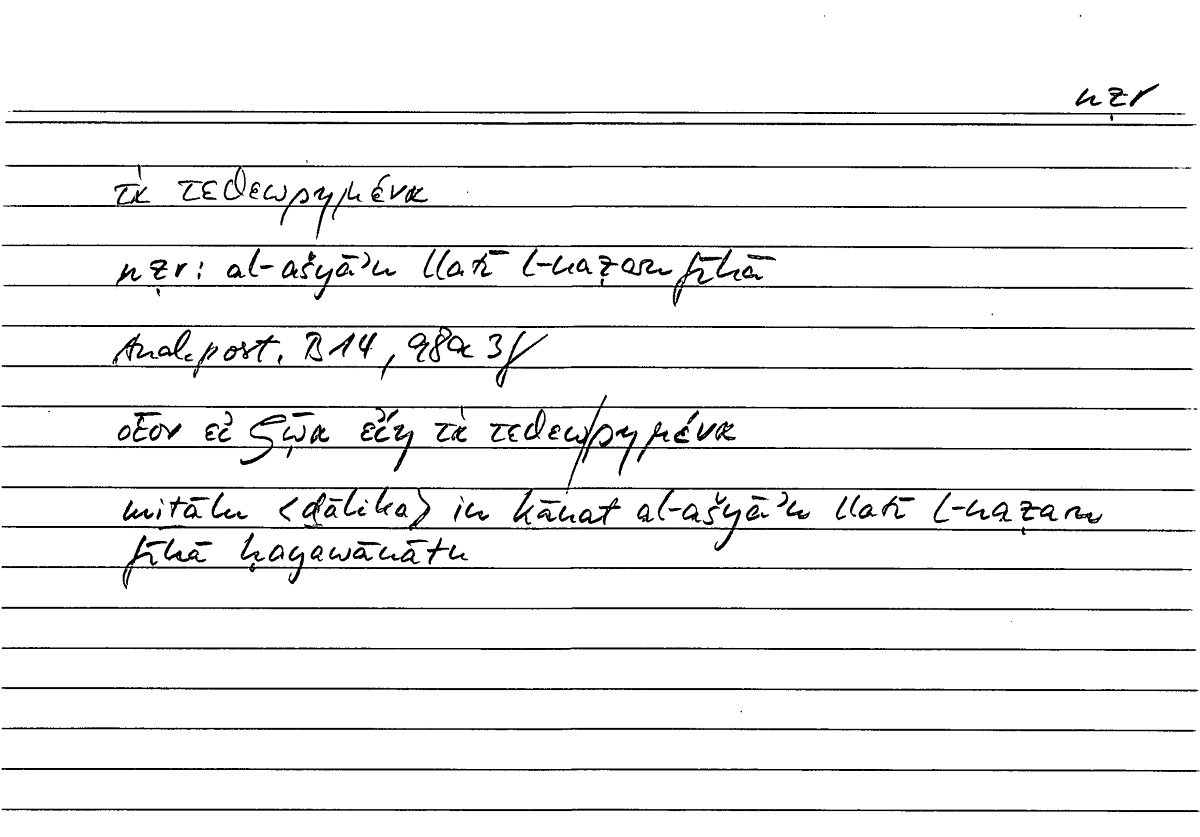 nẓr
τὰ τεθεωρημένα
nẓr: al-ašyāʾu llatī l-naẓaru fīhā
Anal. post. B 14, 98a 3f
οἷον εἰ ζῷα εἴη τὰ τεθεωρημένα
miṯālu <ḏālika> in kānat al-ašyāʾu llatī l-naẓaru
fīhā ḥayawānātu